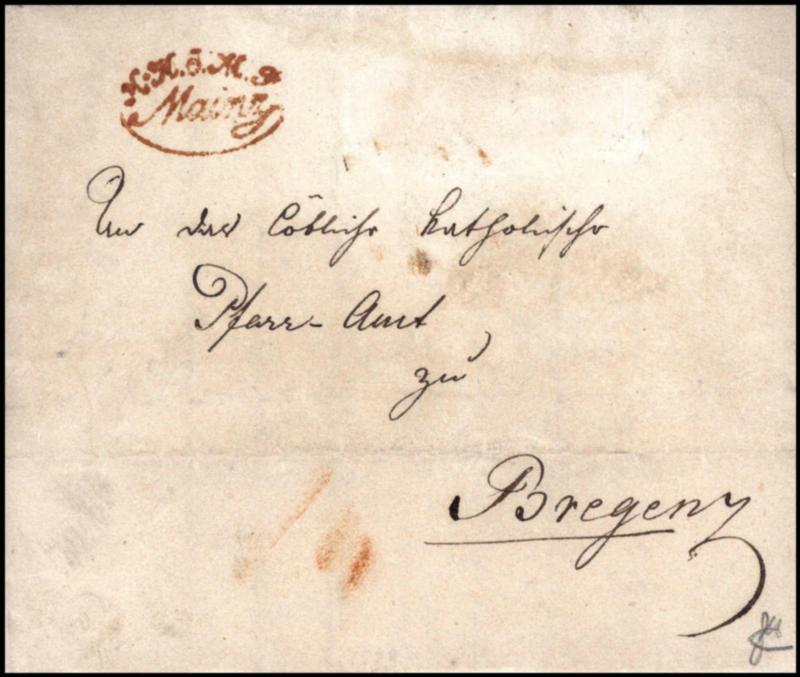 K:K.ö.M.
Mainz
An das Löbliche katholische
Pfarr-Amt
zu
Bregenz